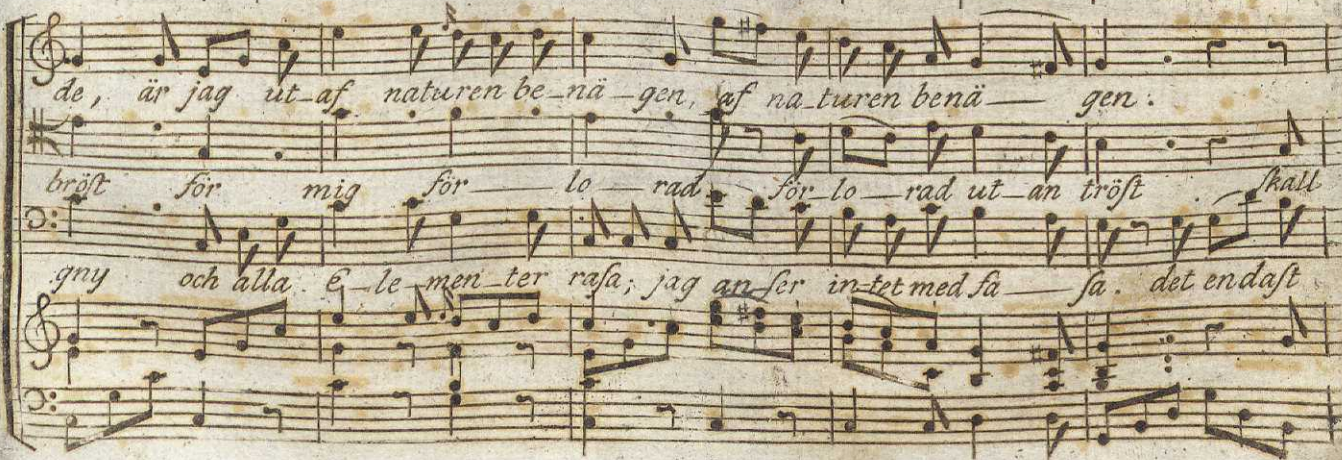 de, är jag ut_af naturen be_nä_gen, af na_turen benä— gen.
bröſt för mig för— lo—rad för_lo—rad ut_an tröſt ſkall
gny och alla e_le_men_ter raſa; jag an_ſer in_tet med fa— ſa. det endaſt